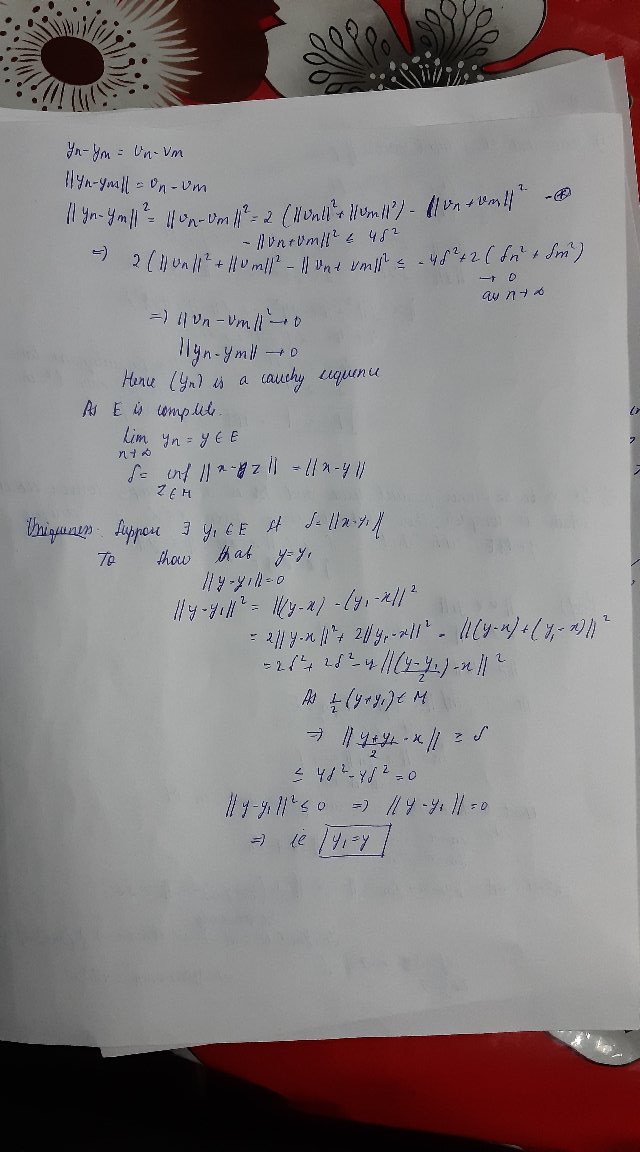 yn-ym = vn-vm
||yn-ym|| = vn-vm
||yn-ym||² = ||vn-vm||² = 2 (||vn||² + ||vm||²) - ||vn+vm||² -⊛
- ||vn+vm||² ≤ 4δ²
⇒ 2(||vn||² + ||vm||² - ||vn+vm||² ≤ -4δ²+2(δn²+δm²)
→ 0
as n→∞
⇒ ||vn-vm||² → 0
||yn-ym|| → 0
Hence (yn) is a cauchy sequence
As E is complete.
lim yn = y ∈ E
n→∞
δ = inf ||x-z|| = ||x-y||
z∈M
Uniqueness. Suppose ∃ y₁ ∈ E st δ = ||x-y₁||
To show that y=y₁
||y-y₁||=0
||y-y₁||² = ||(y-x) -(y₁-x||²
= 2||y-x||² + 2||y₁-x||² - ||(y-x)+(y₁-x)||²
= 2δ²+ 2δ²-4 ||(y-y₁)/2 -x||²
As 1/2 (y+y₁) ∈ M
⇒ ||y+y₁/2 -x|| ≥ δ
≤ 4δ²-4δ² =0
||y-y₁||² ≤ 0 ⇒ ||y-y₁||=0
⇒ ie y₁=y